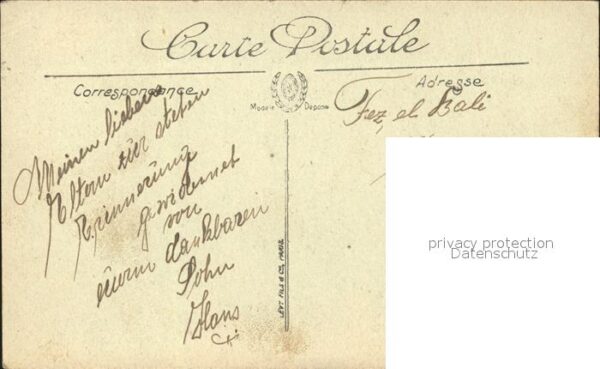 Carte Postale
Correspondance
Adresse
Modèle Déposé
Meinen lieben
Eltern zur steten
Erinnerung
gewidmet
von
eurem dankbaren
Sohn
Hans
Fez el Bali
LEVY FILS & Cie, PARIS
privacy protection
Datenschutz